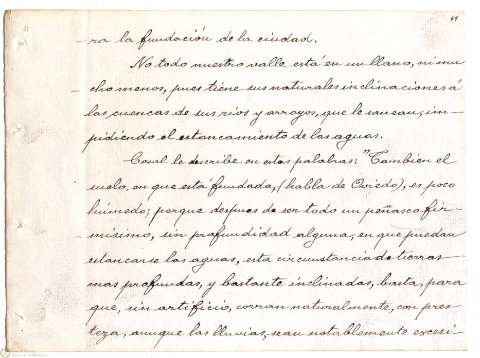 -ra la fundación de la ciudad.
No todo nuestro valle está en un llano, ni mu
cho menos, pues tiene sus naturales inclinaciones á
las cuencas de sus ríos y arroyos, que le sanean, im-
pidiendo el estancamiento de las aguas.
Casal le describe en estas palabras: "Tambien el
suelo, en que está fundada, (habla de Oviedo), es poco
húmedo; porque despues de ser todo un peñasco fir-
mísimo, sin profundidad alguna, en que puedan
estancarse las aguas, esta circunstancia de tierras
mas profundas, y bastante inclinadas, basta, para
que, sin artificio, corran naturalmente, con pres-
teza, aunque las lluvias, sean notablemente excesi